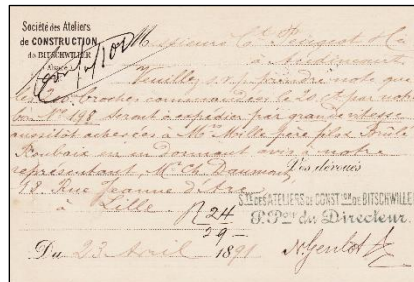 Société des Ateliers
de CONSTRUCTION
de BITSCHWILLER
(Alsace)
Messieurs Ct. Peugeot & Cie
à Audincourt
Veuillez s.v.p. prendre note que
les 200 broches commandées le 20 ct par notre
bon No 198 seront à expédier par grande vitesse
aussitôt achevées à Mrs Mille père fils
Roubaix en en donnant avis à notre
représentant Mr Ch Daumont,
18 Rue Jeanne d'Arc
à Lille
Vos dévoués
STÉ DES ATELIERS DE CONSTION DE BITSCHWILLER
P. Pon du Directeur.
R 24
29
Du 23 Avril 1891